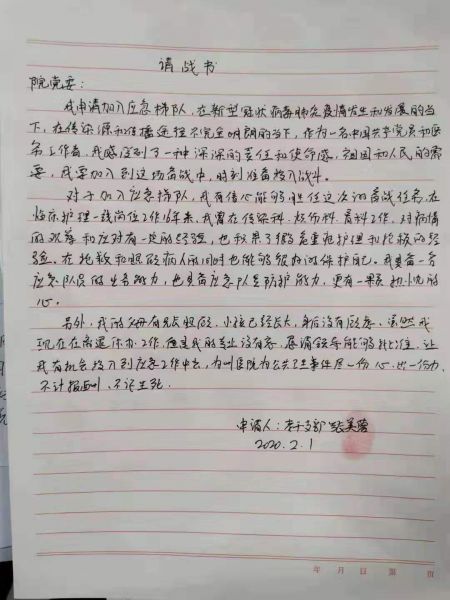 请战书
院党委:
我申请加入应急梯队,在新型冠状病毒肺炎疫情发生和发展的当
下,在传染源和传播途径不完全明朗的当下,作为一名中国共产党员和医
务工作者,我感受到了一种深深的责任和使命感,祖国和人民的需
要,我要加入到这场备战中,时刻准备投入战斗。
对于加入应急梯队,我有信心能够胜任这次的备战任务,在
临床护理一线岗位工作16年来,我曾在传染科、烧伤科、骨科工作,对病情
的观察和应对有一定的经验,也积累了很多危重症护理和抢救的经
验。在抢救和照顾病人的同时也能够很好的保护自己。我具备一名
应急队员的业务能力,也具备应急队员防护能力,更有一颗无惧的
心。
另外,我的父母有兄长照顾,小孩已经长大,身后没有顾虑。虽然我
现在在离退休办工作,但是我的专业没有丢,恳请领导能够批准,让
我有机会投入到应急工作中去,为咱医院为公共卫生事件尽一份心,出一份力,
不计报酬,不论生死。
申请人:老干部
2020.2.1
年 月 日 第 页